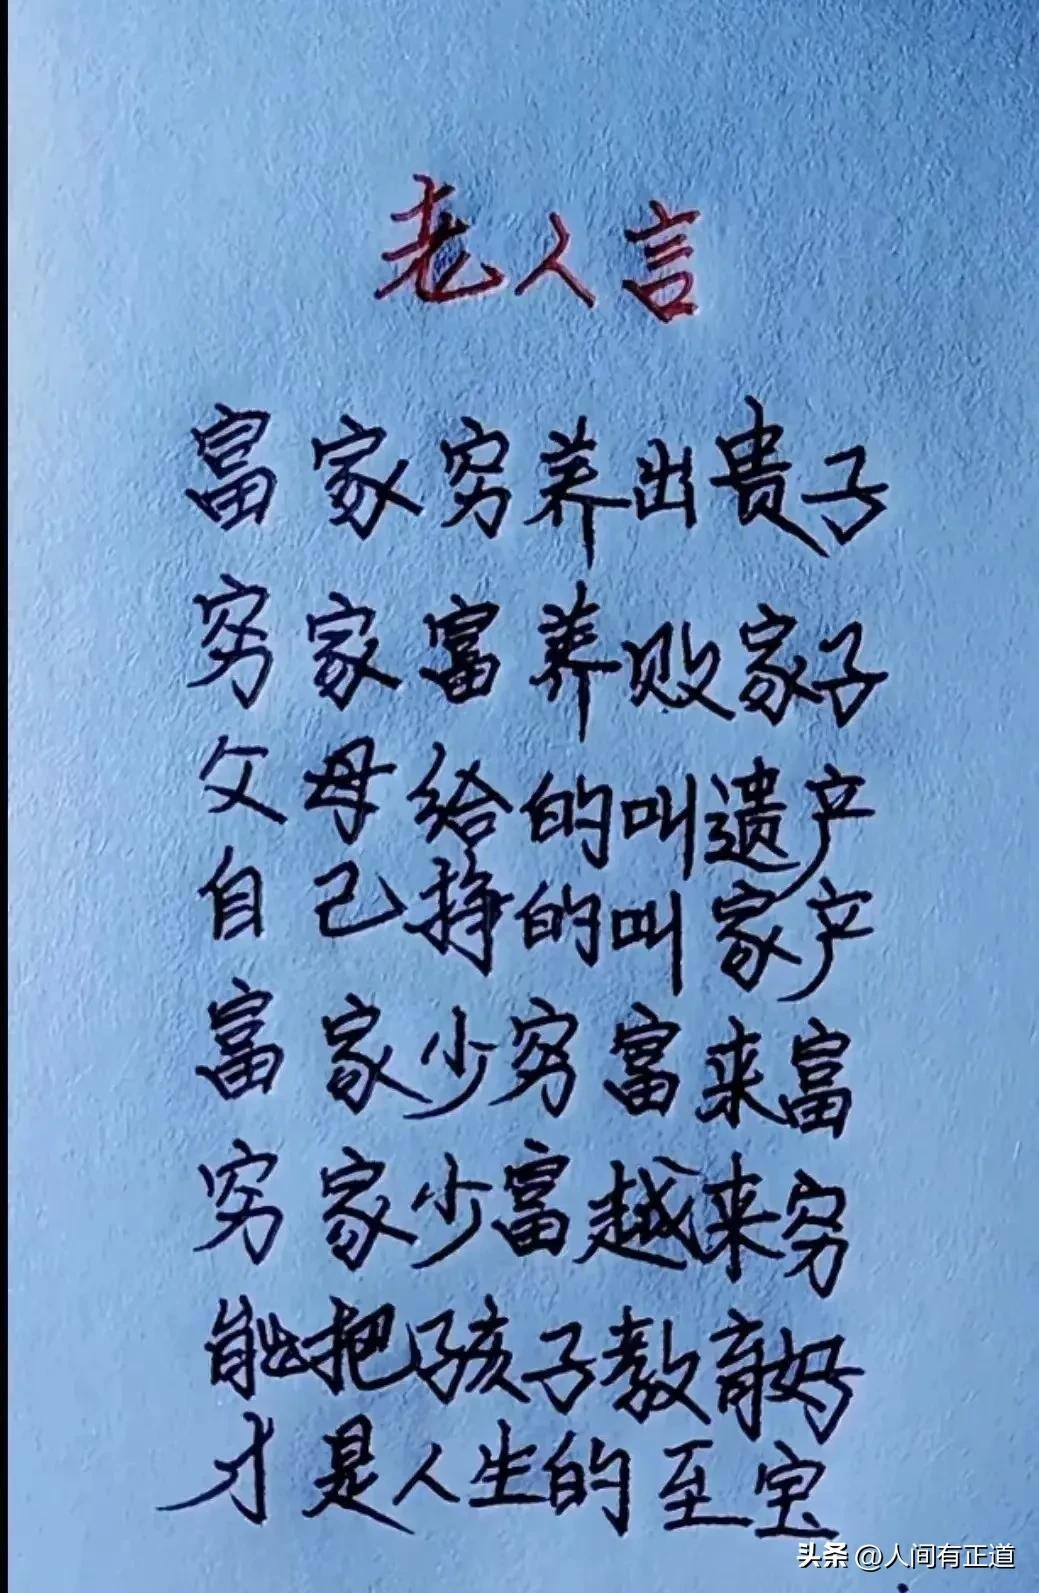 老人言
富家穷养出贵子
穷家富养败家子
父母给的叫遗产
自己挣的叫家产
富家少穷富来富
穷家少富越来穷
能把孩子教育好
才是人生的至宝
头条 @人间有正道